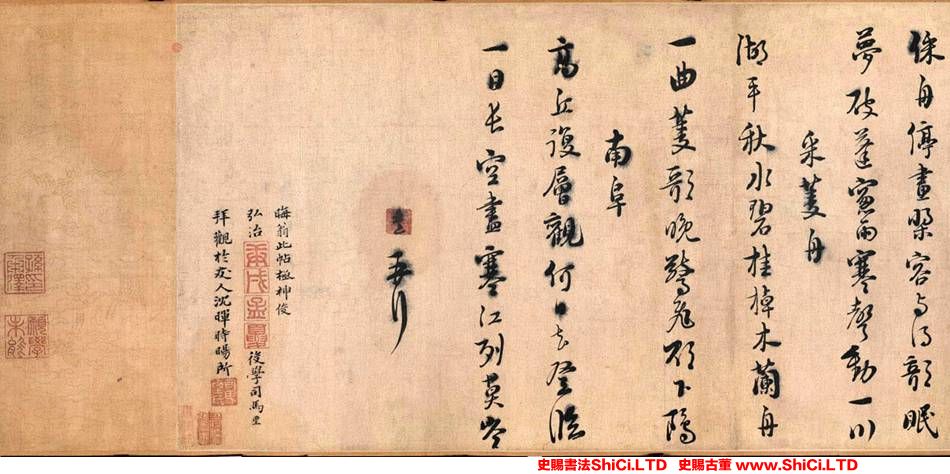 綵舟停畫槳容與得歌眠
夢破蓬窻雨寒聲動一川
采菱舟
湖平秋水碧桂棹木蘭舟
一曲菱歌晚驚飛欲下鷗
南阜
高丘復層觀何日去登臨
一目長空盡寒江列莫岑
熹
晦翁此帖極神俊
弘治庚戌孟夏後學司馬垔
拜觀於友人沈暉時暘所
史賜書法ShiCi.LTD 史賜古董 www.ShiCi.LTD